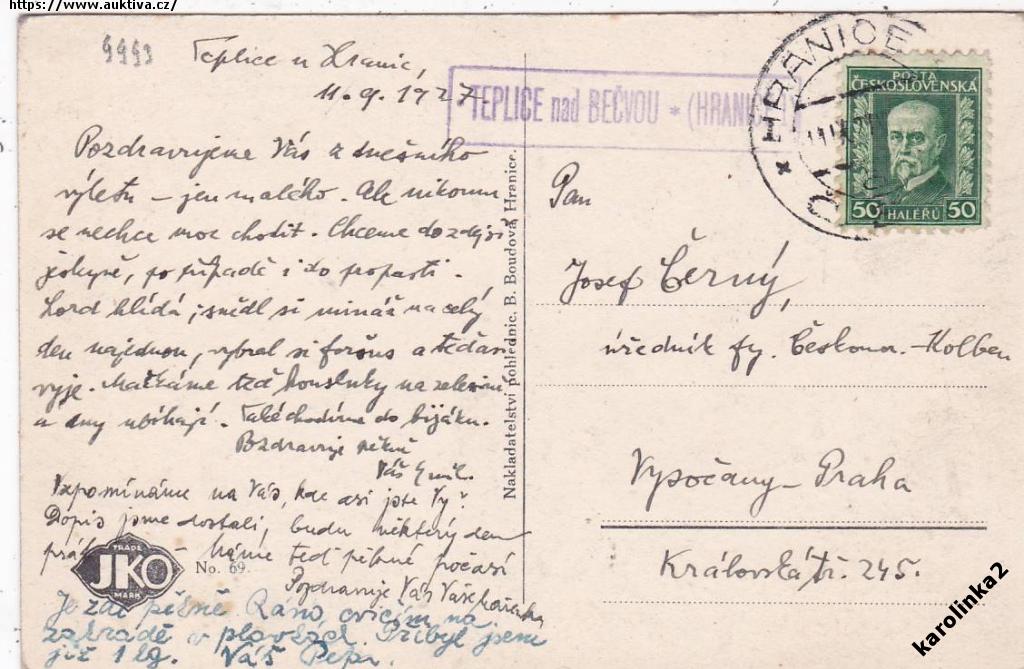 https://www.auktiva.cz/
9953
Teplice u Hranic,
11.9.1927
TEPLICE nad BEČVOU * (HRANICE
HRANICE
POŠTA
ČESKOSLOVENSKÁ
50 HALÉŘŮ 50
Pozdravujeme Vás z dnešního
výletu – jen malého. Ale nikomu
se nechce moc chodit. Chceme do zdejší
jeskyně, po případě i do propasti.
Lord hlídá, snědl si
den najednou, vybral si foršus a teď asi
vyje. Mačkáme teď housenky na zelenině
a dny ubíhají. Také chodíme do bijáku.
Pozdravuje pěkně
Váš
Vzpomínáme na Vás, kde asi jste Vy?
Dopis jsme dostali, budu některý den
Máme teď pěkné počasí
Pozdravuje Vás Vaše
Je zde pěkně. Ráno cvičím na
zahradě v plavkách. Přibyl jsem
již 1 kg. Váš Pepa.
TRADE
JKO
MARK
No. 69.
Nakladatelství pohlednic, B. Boudová, Hranice.
Pan
Josef Černý,
úředník fy. Českomor.-Kolben
Vysočany-Praha
Královská tř. 245.
karolinka2